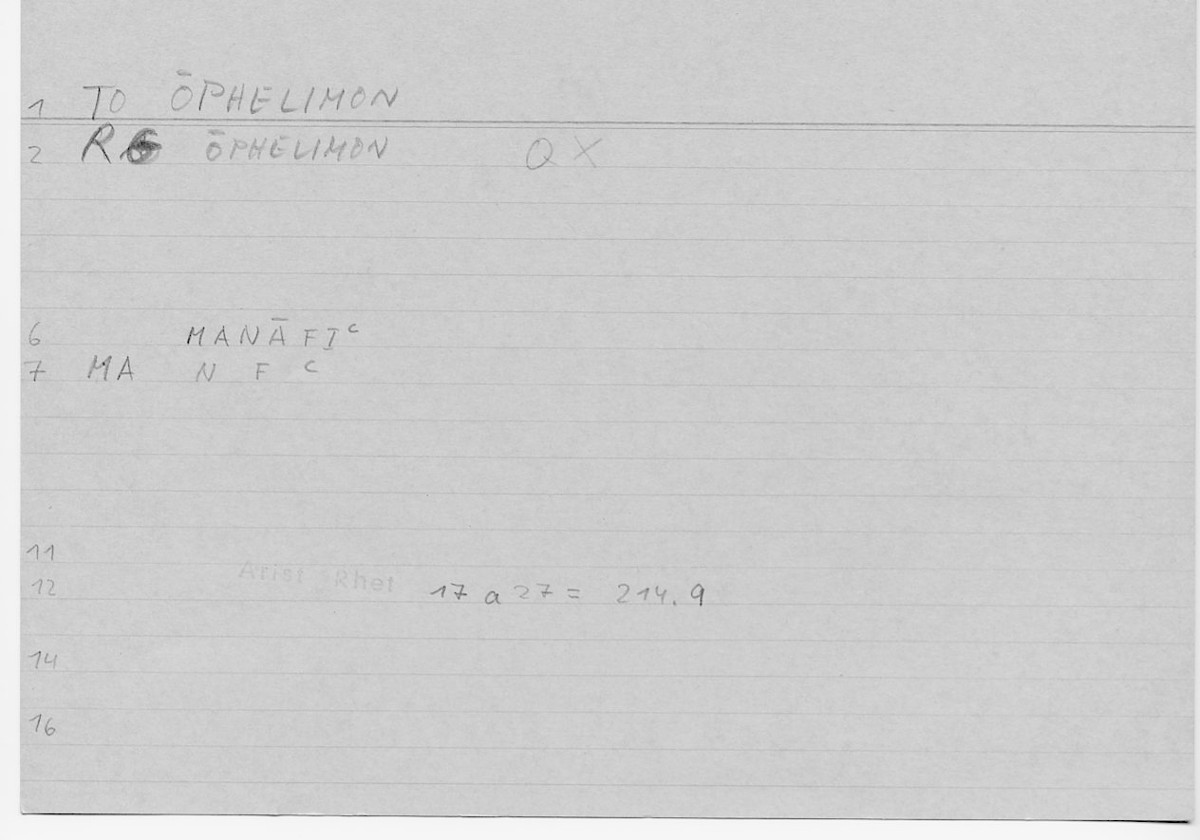 1 TO ŌPHELIMON
2 R ŌPHELIMON QX
6 MANĀFIᶜ
7 MA N F ᶜ
11
12 Arist Rhet 17 a 27 = 214.9
14
16